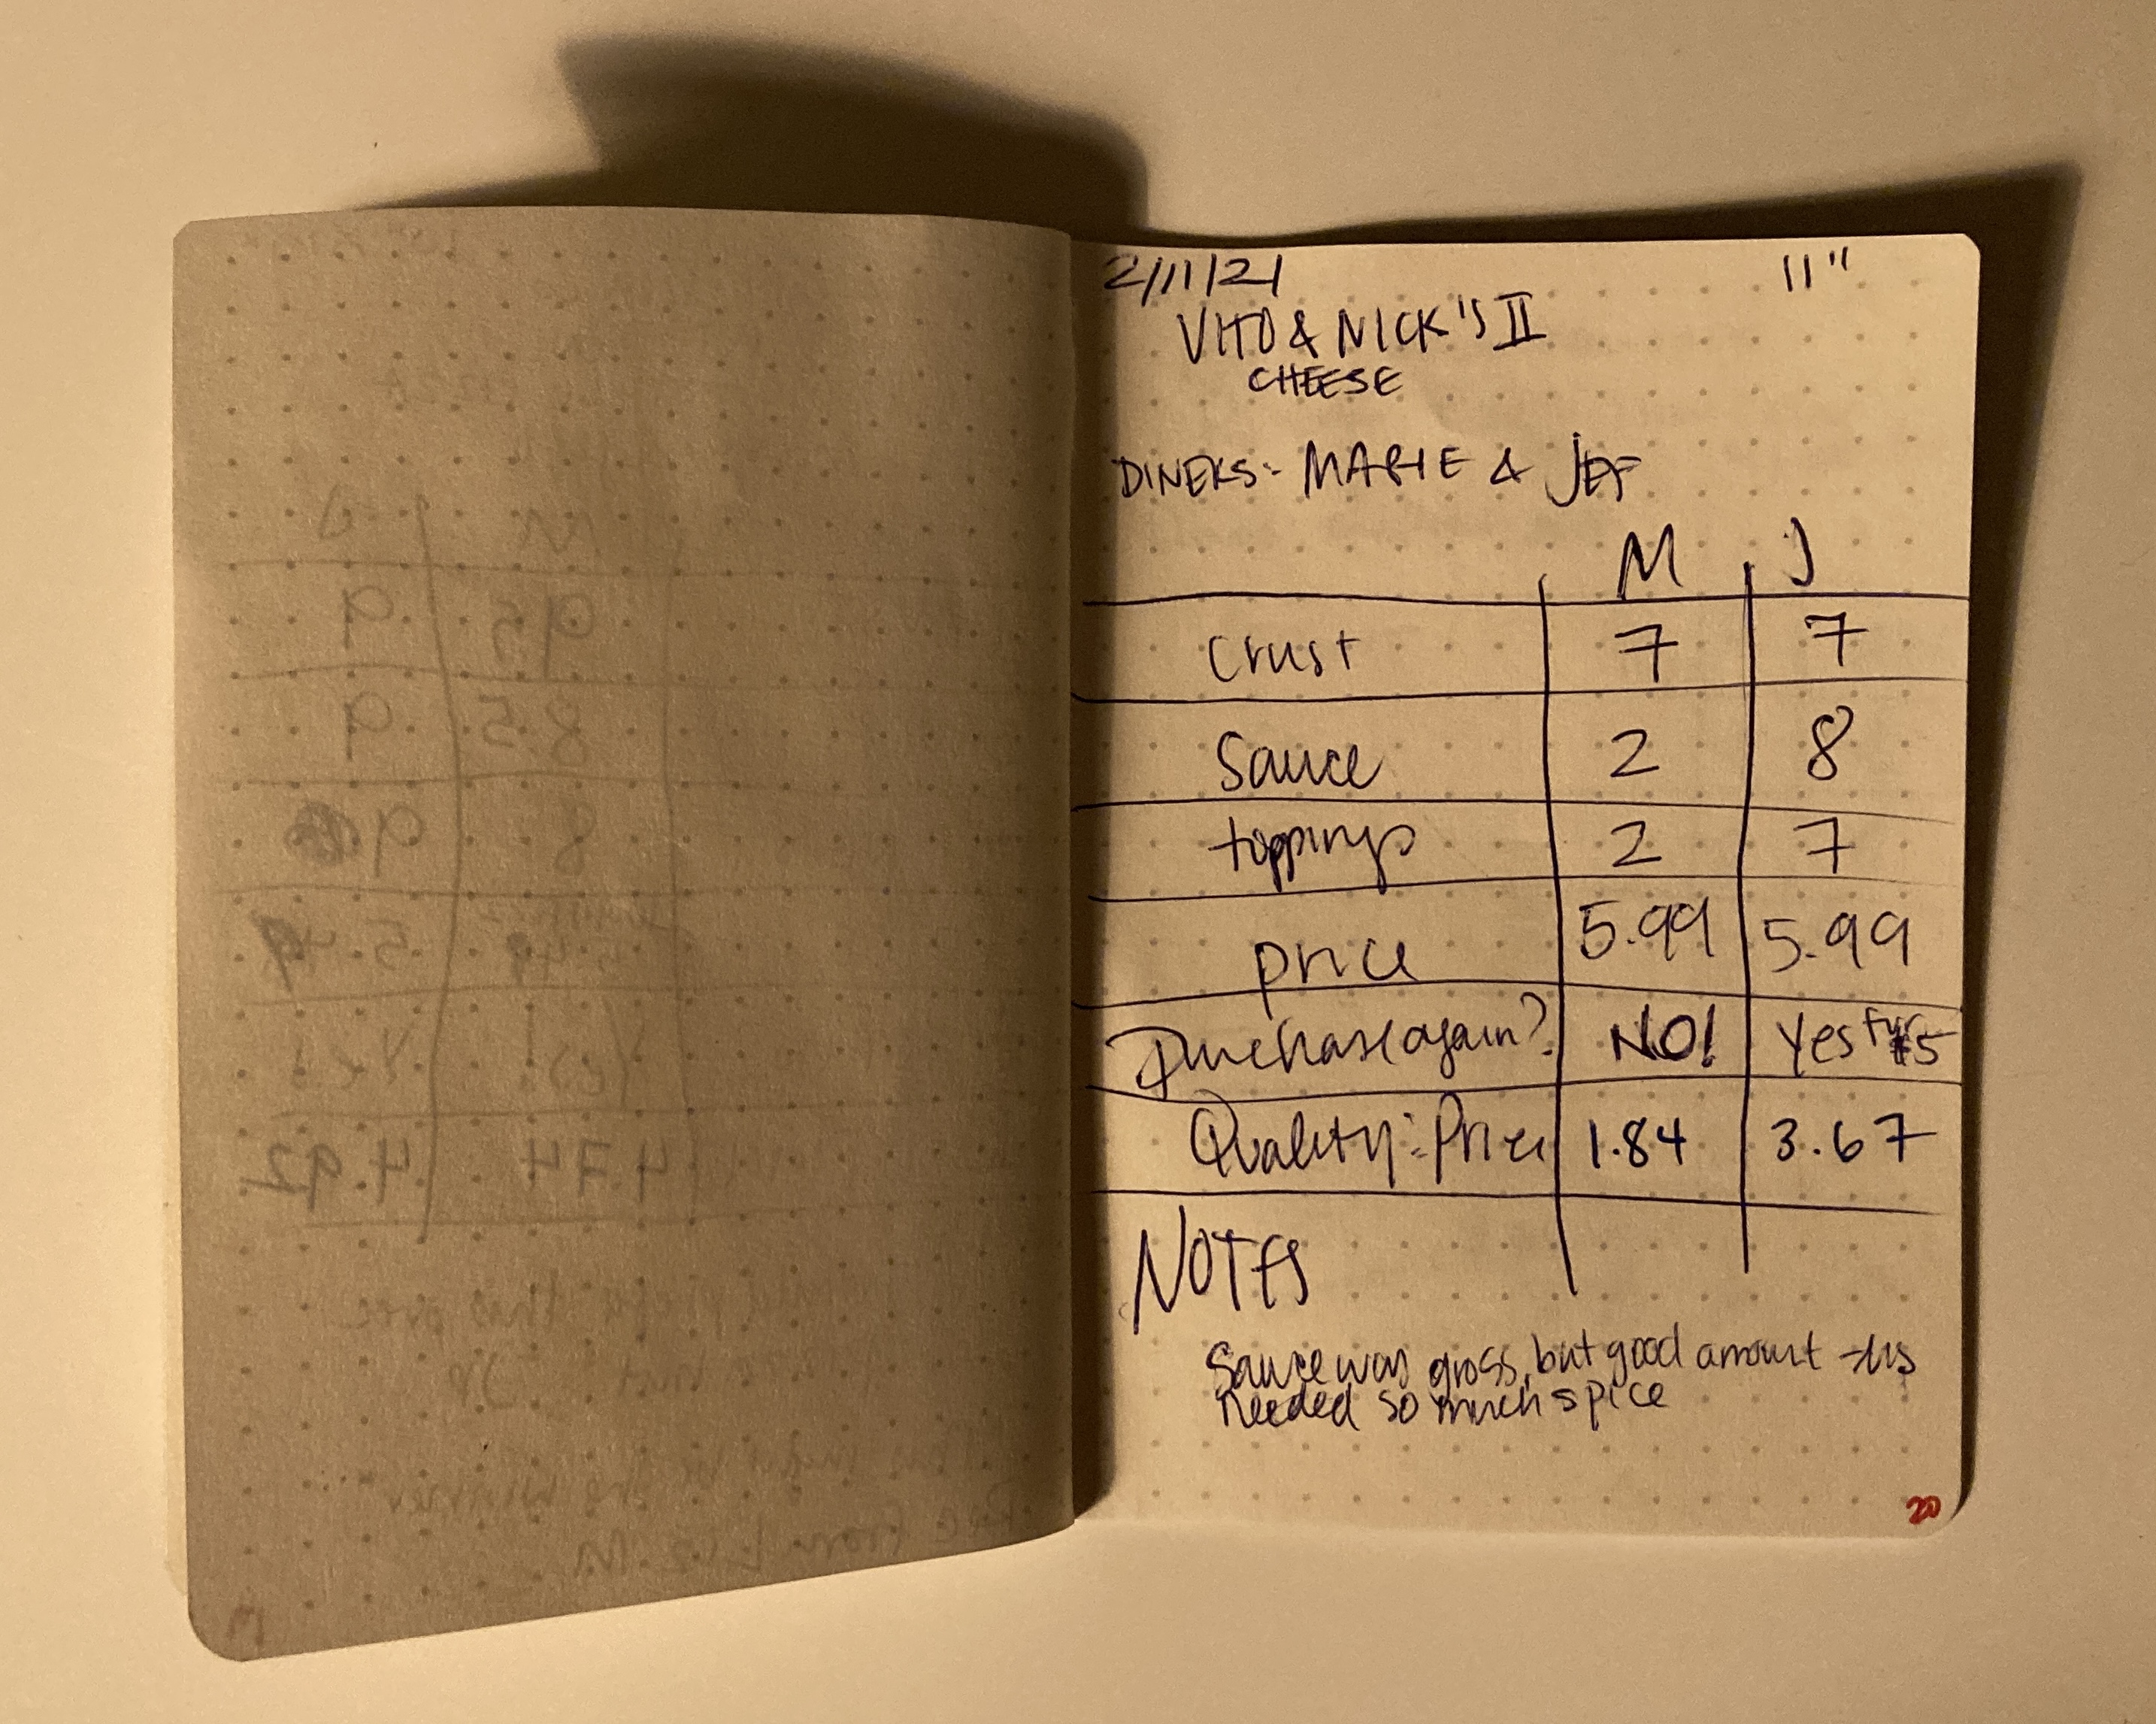 2/11/21 11"
VITO & NICK'S II
CHEESE
DINERS: MARIE & JEF
M J
Crust 7 7
Sauce 2 8
toppings 2 7
price 5.99 5.99
Purchase again? NO! Yes for $5
Quality:Price 1.84 3.67
NOTES
Sauce was gross, but good amount
needed so much spice
20